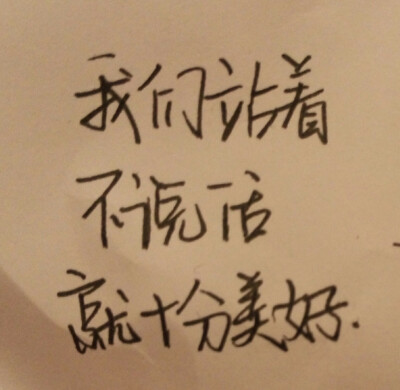 我们站着
不说话
就十分美好.